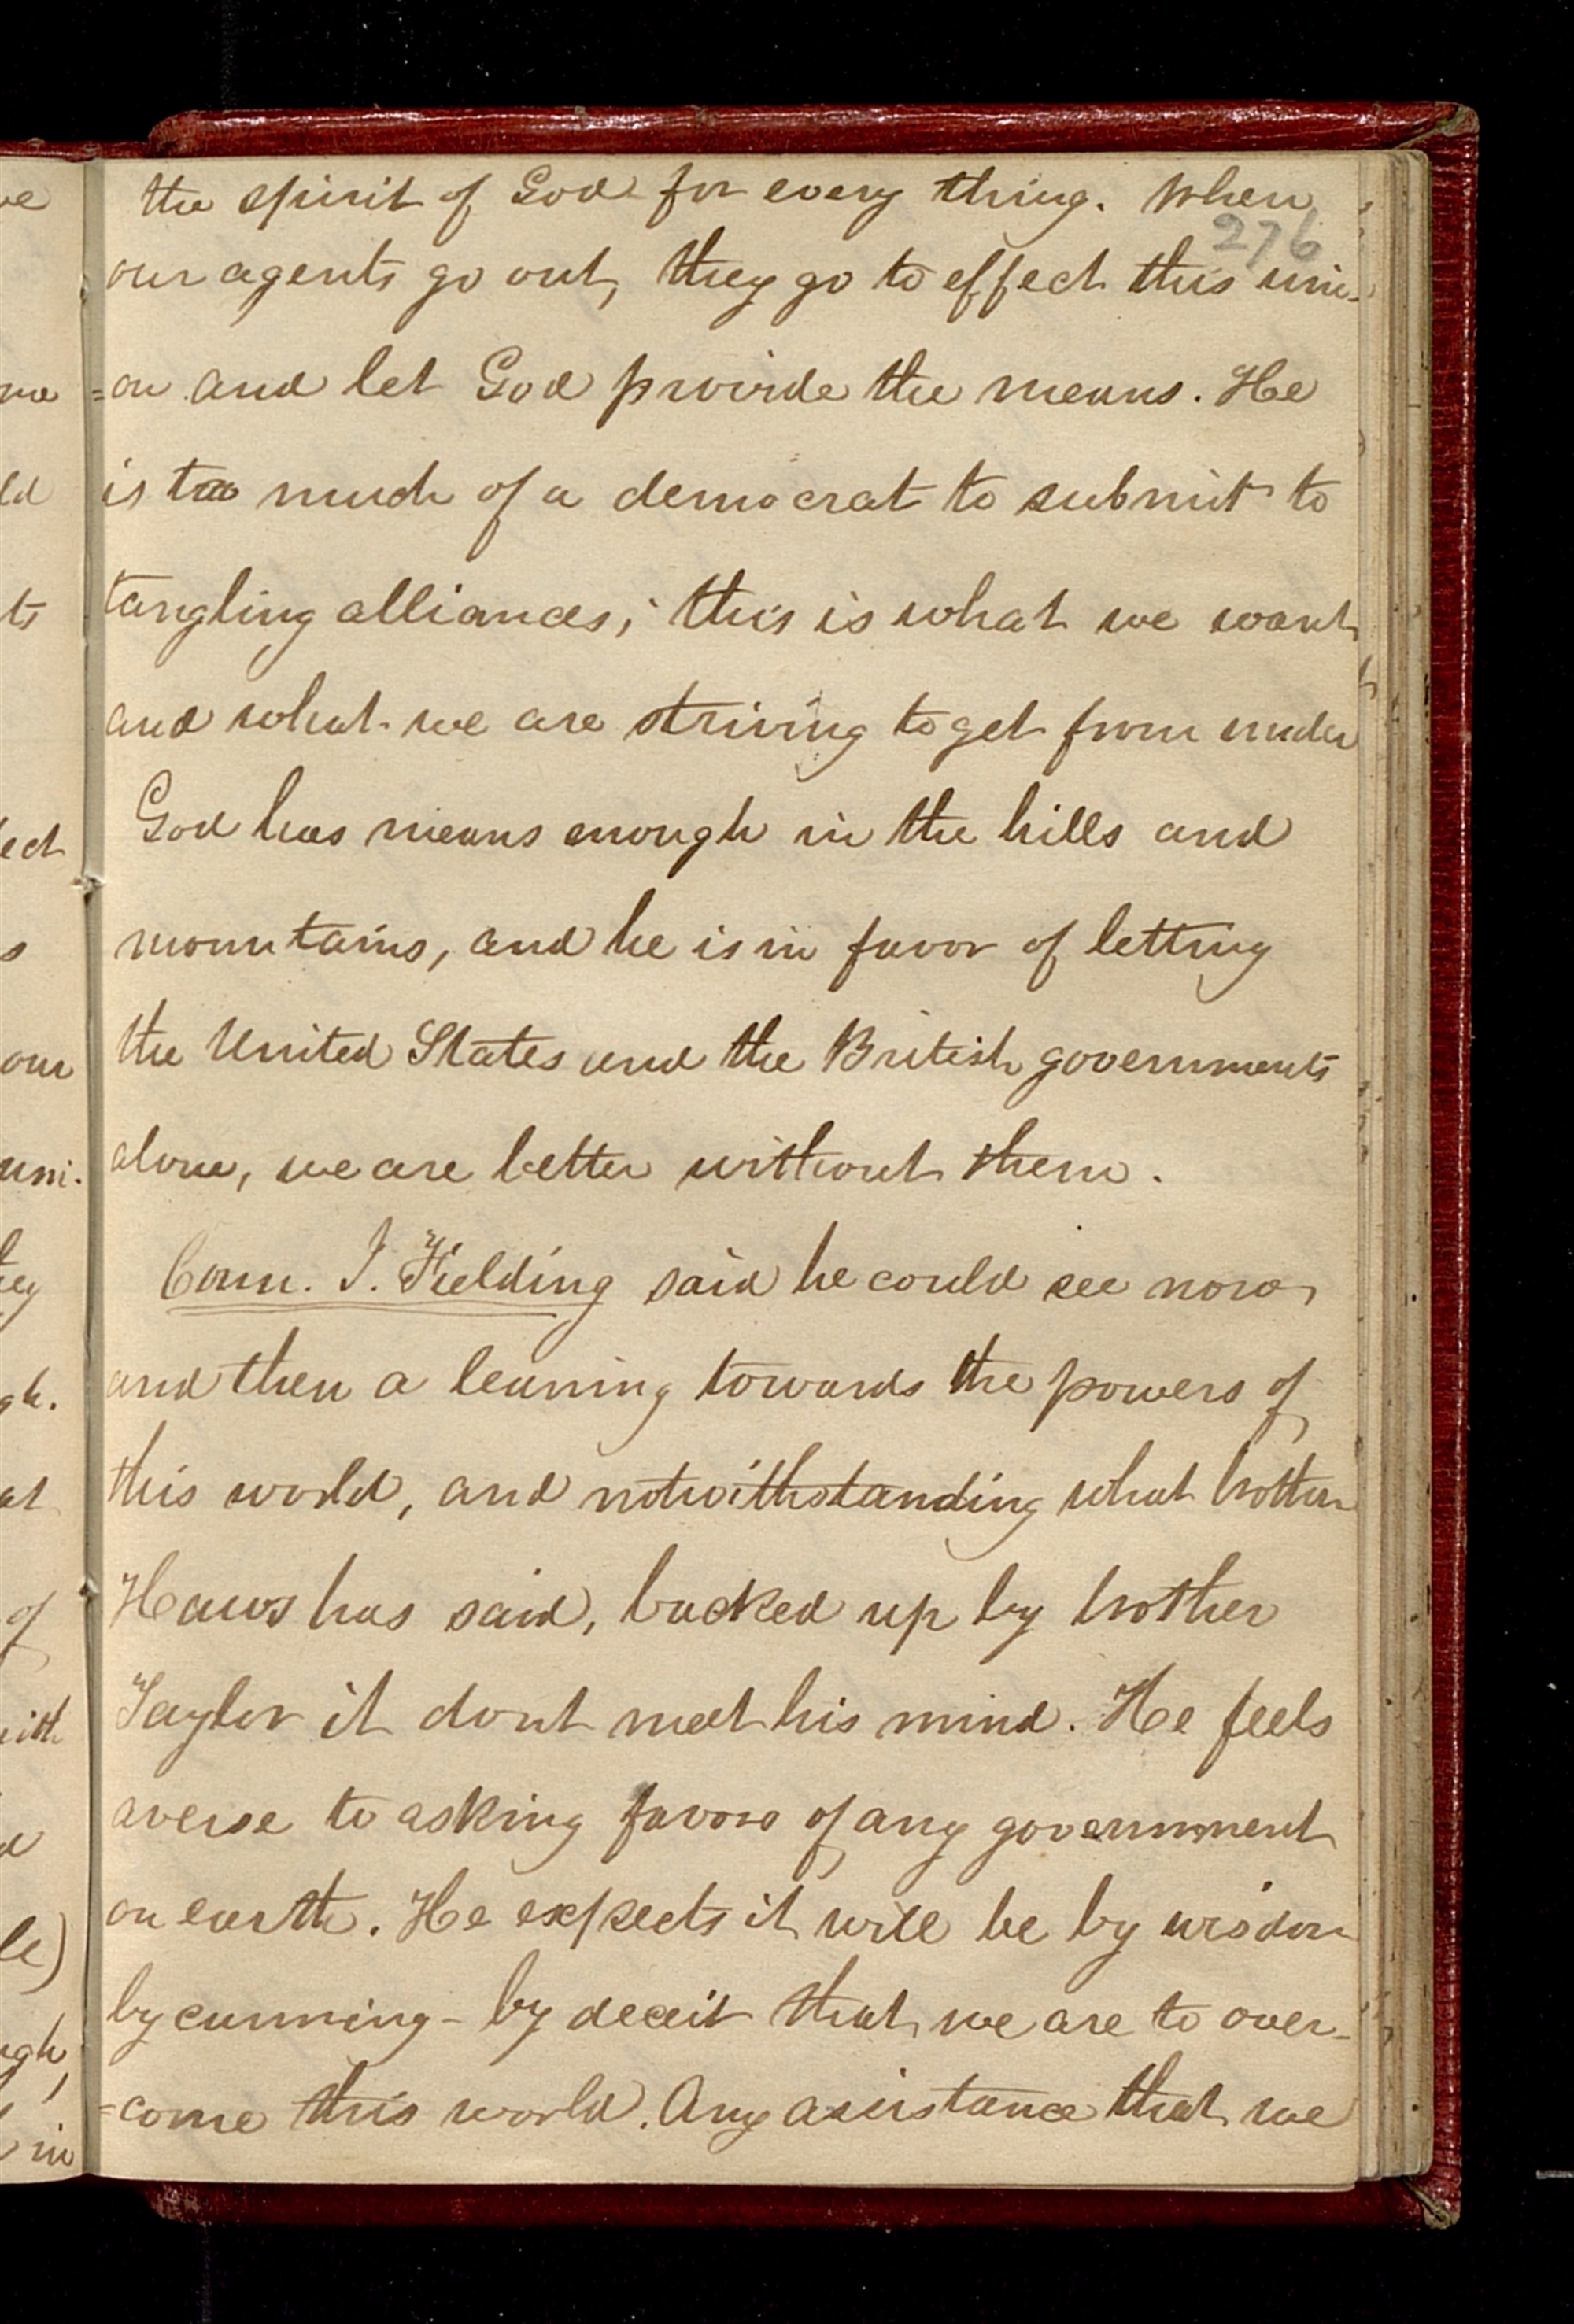 the spirit of God for every thing. When
276
our agents go out, they go to effect this uni-
=on and let God provide the means. He
is too much of a democrat to submit to
tangling alliances; this is what we want
and what we are striving to get from under
God has means enough in the hills and
mountains, and he is in favor of letting
the United States and the British governments
alone, we are better without them.
Coun. J. Fielding said he could see now
and then a leaning towards the powers of
this world, and notwithstanding what brother
Haws has said, backed up by brother
Taylor it dont meet his mind. He feels
averse to asking favors of any government
on earth. He expects it will be by wisdom
by cunning - by deceit that we are to over-
=come this world. Any assistance that we